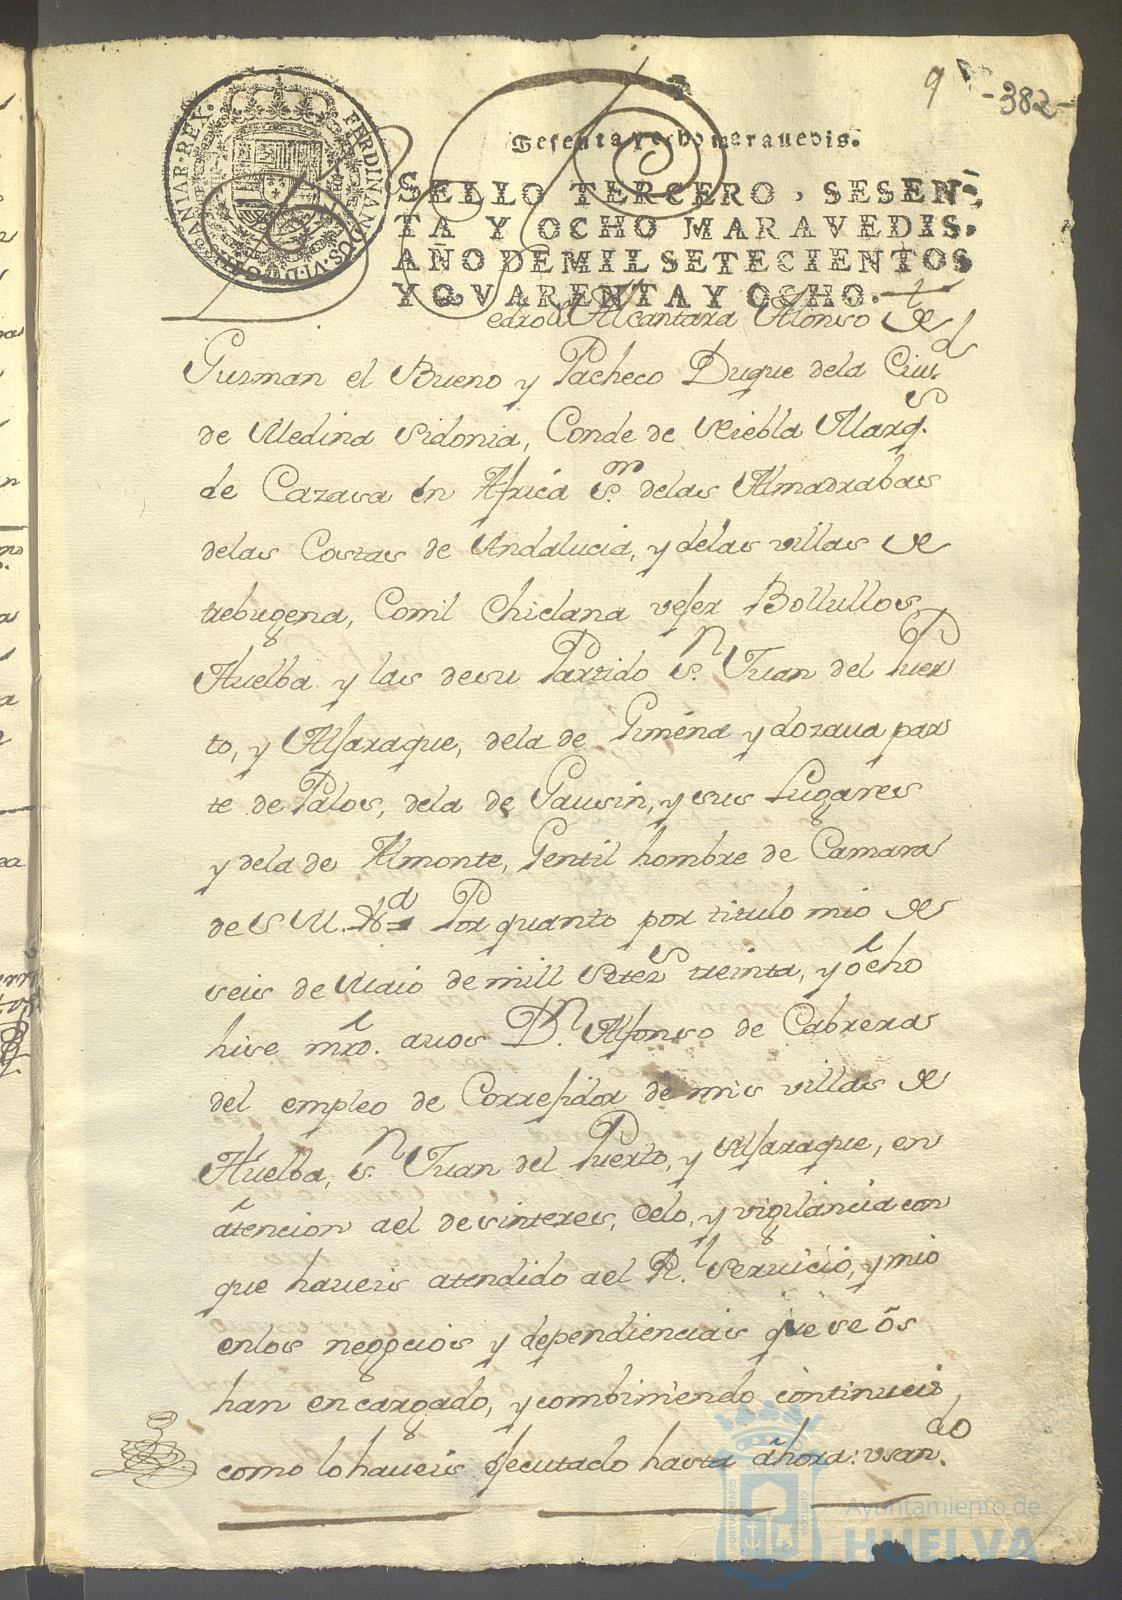 9 -382-
Sesenta y ocho maravedis.
FERDINANDUS·VI·D·G· HISPANIAR·REX·
SELLO TERCERO, SESEN-
TA Y OCHO MARAVEDIS,
AÑO DE MIL SETECIENTOS
Y QVARENTA Y OCHO.
Pedro de Alcantara Alonso de
Guzman el Bueno y Pacheco Duque dela Ciud.
de Medina Sidonia, Conde de Niebla Marqs.
de Cazasa en Africa sor. delas Almadrabas
delas Costas de Andalucia, y delas villas de
trebugena, Conil Chiclana vejer Bollullos,
Huelba y las desu Partido Sn. Juan del Puer
to, y Aljaraque, dela de Gimena y dozaua par
te de Palos, dela de Gausin, y sus Lugares
y dela de Almonte, Gentil hombre de Camara
de S M. Por quanto por titulo mio de
seis de Maio de mill Setezs. treinta, y ocho
hise mrd. auos Dn. Alfonso de Cabreras
del empleo de Correjidor de mis villas de
Huelba, Sn. Juan del Puerto, y Aljaraque, en
atencion ael desinteres, Celo, y vigilancia con
que haueis atendido ael Rl. Seruicio, y mio
enlos negocios y dependiencias que se ôs
han encargado, y combiniendo continueis
como lo haueis ejecutado hasta ahora: vsando.
Ayuntamiento de
HUELVA